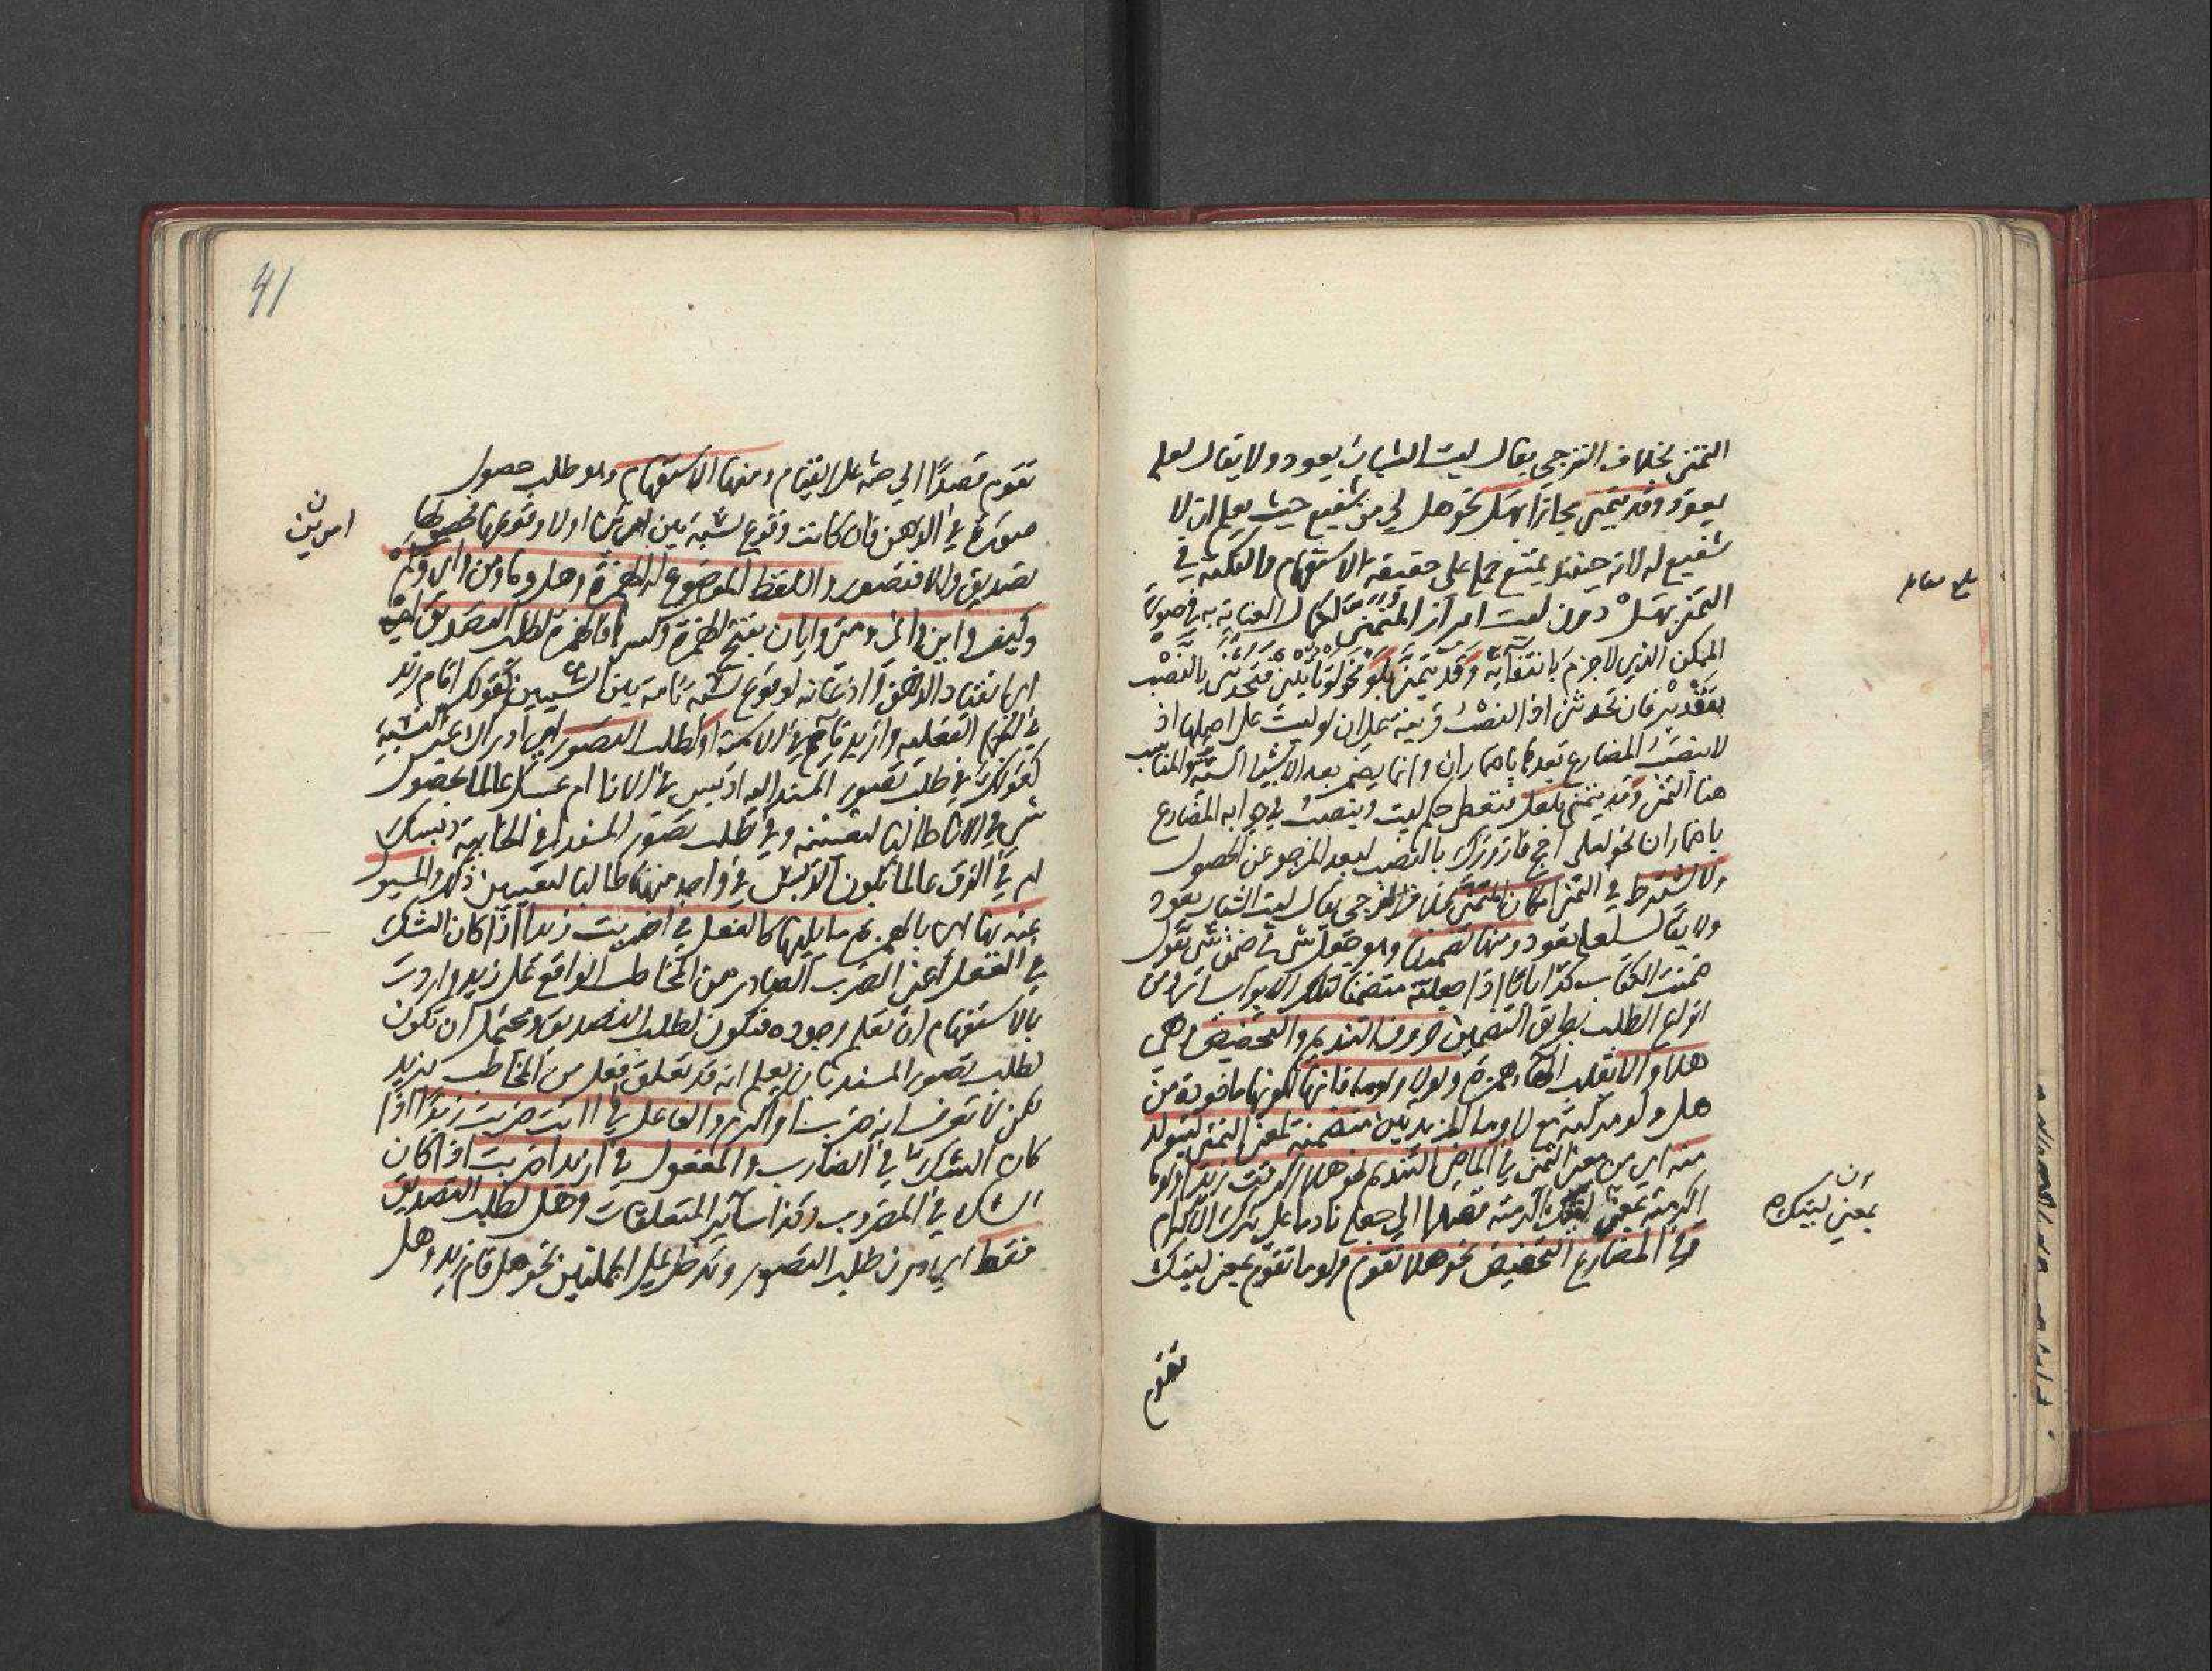 التمنى بخلاف الترجي يقال ليت الشباب يعود ولا يقال لعله
يعود وقد يتمنى مجازا بهل نحو هل لي من شفيع حيث يعلم ان لا
شفيع له لانه حينئذ يمتنع حمله على حقيقة الاستفهام والنكتة في
التمنى بهل دون ليت ابراز المتمنى لكمال العناية به في صورة
الممكن الذي لا جزم بانتفائه وقد يتمنى بلو نحو لو تأتيني فتحدثني بالنصب
بتقدير فان تحدثني اذ النصب قرينة على ان لو ليست على اصلها اذ
لا ينصب المضارع بعدها باضمار ان وانما يضمر بعد الاشياء الستة والمناسب
هنا التمنى وقد يتمنى بلعل فتعطى حكم ليت وينصب في جوابه المضارع
باضمار ان نحو لعلى احج فازورك بالنصب لبعد المرجو عن الحصول
ولا يشترط في التمنى امكان المتمنى بخلاف الترجي يقال ليت الشباب يعود
ولا يقال لعله يعود ومنها وهو جعل شي في ضمن شي تقول
ضمنت الكتاب كذا بابا اذا جعلته متضمنا لتلك الابواب
انواع الطلب بطريق التضمين حروف التنديم والتحضيض وهى
هلا والا بقلب الهاء همزة ولولا ولوما فانها لكونها ماخوذة من
هل ولو مركبة مع لا وما المزيدتين متضمنة لمعنى التمنى ليتولد
منه اي من معنى التمنى في الماضي التنديم نحو هلا اكرمت زيدا ولوما
اكرمته بمعنى ليتك اكرمته قصدا الي جعله نادما على ترك الاكرام
وفي المضارع التحضيض نحو هلا تقوم ولوما تقوم بمعنى ليتك
تقوم
بمعنى ليتك
41
تقوم قصدًا الي حثه على القيام ومنها الاستفهام وهو طلب حصول
صورة في الذهن فان كانت وقوع نسبة بين او لا وقوعها فحصولها
تصديق والا فتصور واللفظ الموضوع له الهمزة وهل وما ومن واي وكم
وكيف واين واني ومتى وايان بفتح الهمزة وكسرها فالهمزة لطلب التصديق
اي انقياد الذهن واذعانه لوقوع نسبة تامة بين الشيئين كقولك اقام زيد
في الجملة الفعلية وازيد قايم في الاسمية او لطلب التصور اي ادراك غير النسبة
كقولك في طلب تصور المسند اليه ادبس في الانا ام عسل عالما بحصول
شي في الانا طالبا لتعيينه وفي طلب تصور المسند افي الخابية دبسك
ام في الزق عالما بكون الدبس في واحد منهما طالبا لتعيين ذلك والمسئول
عنه بها اي بالهمزة هو ما يليها كالفعل في اضربت زيدا اذا كان الشك
في الفعل اعنى الضرب الصادر من المخاطب الواقع على زيد واردت
بالاستفهام ان تعلم وجوده فتكون لطلب التصديق ويحتمل ان تكون
لطلب تصور المسند بان يعلم انه قد تعلق فعل من المخاطب بزيد
لكن لا تعرف انه ضرب او اكرم والفاعل في اانت ضربت زيدًا اذا
كان الشك في الضارب والمفعول في ازيدا ضربت اذا كان
الشك في المضروب وكذا سائر المتعلقات وهل لطلب التصديق
فقط اي دون طلب التصور وتدخل على الجملتين نحو هل قام زيد وهل
امرين